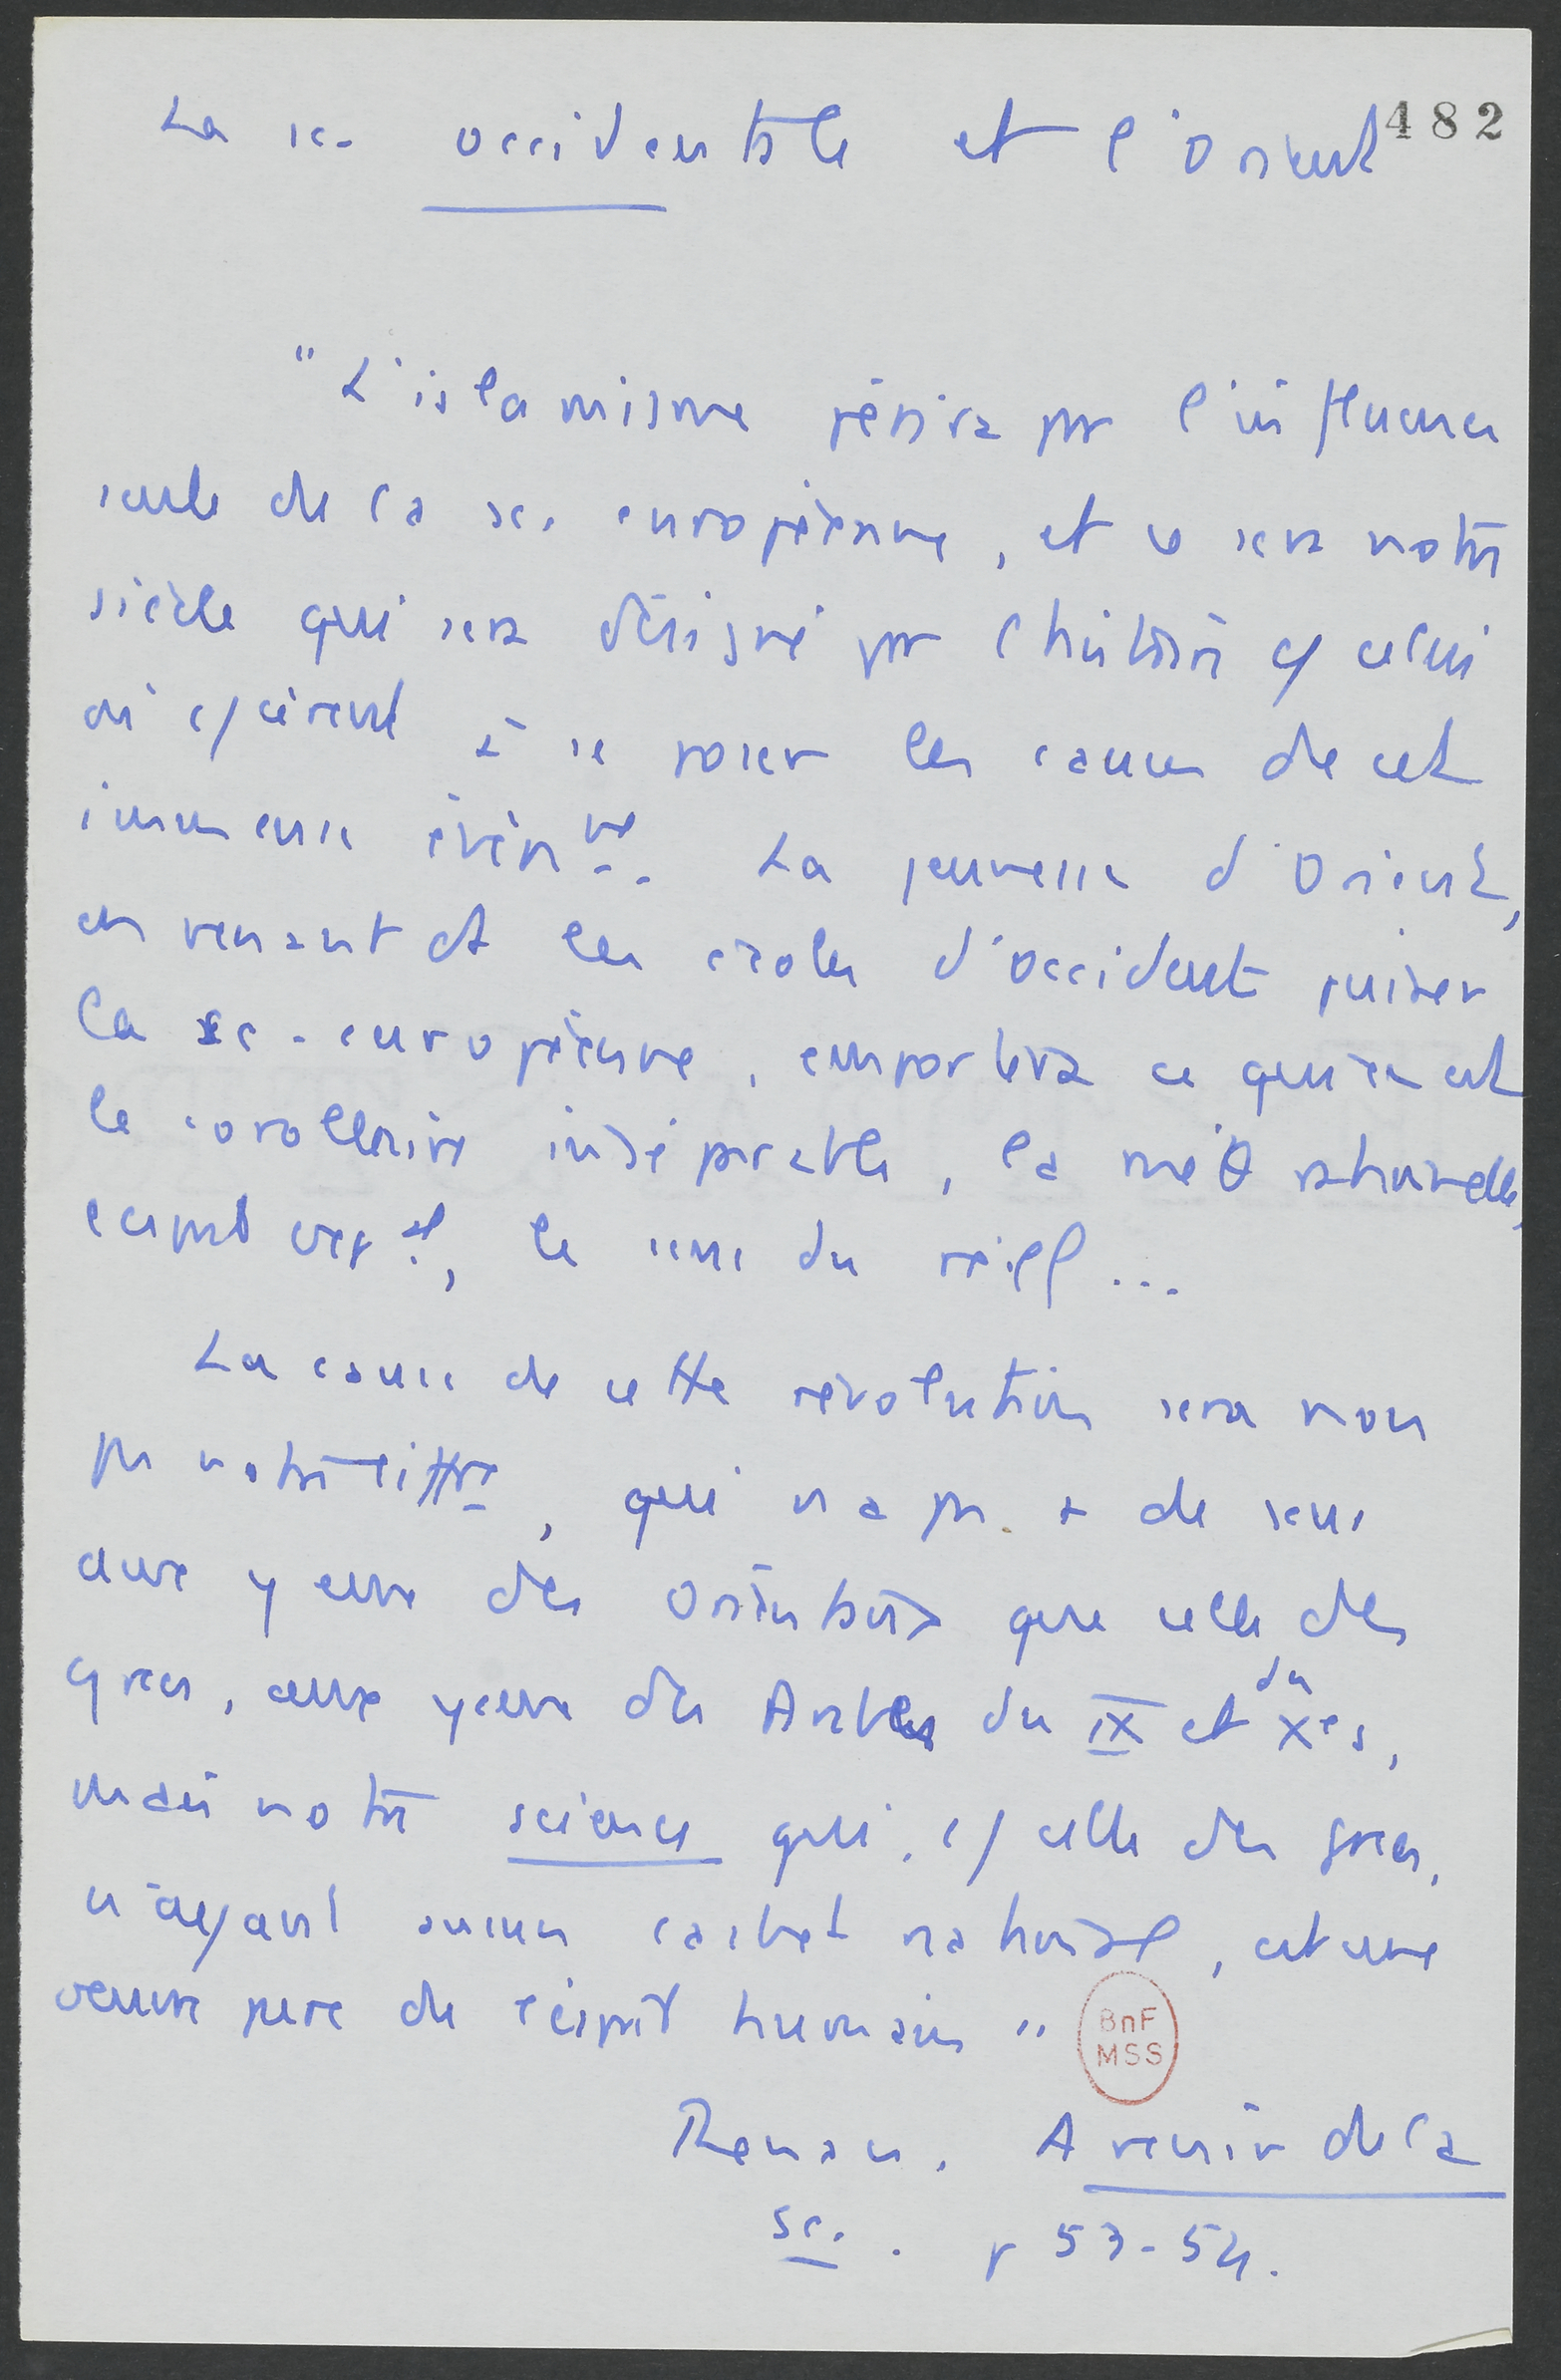 La sc. occidentale et l'Orient
482
"L'islamisme périra par l'influence
seule de la sc. européenne, et ce sera notre
siècle qui sera désigné par l'histoire c/ celui
où c/cèrent à se poser les causes de cet
immense évén me. La jeunesse d'Orient,
en venant ds les écoles d'occident puiser
la sc. européenne, emportera ce qui en est
le corollaire inséparable, la méθ rationnelle,
l'esprit exp al, le sens du réel ...
La cause de cette révolution sera non
pas notre littre, qui n'a pas + de sens
aux yeux des Orientaux que celle des
grecs, aux yeux des Arabes du IX et du Xe s,
mais notre science qui, c/ celle des grecs,
n'ayant aucun cachet national, est une
oeuvre pure de l'esprit humain"
BnF
MSS
Renan. Avenir de la
sc. . p 53-54.